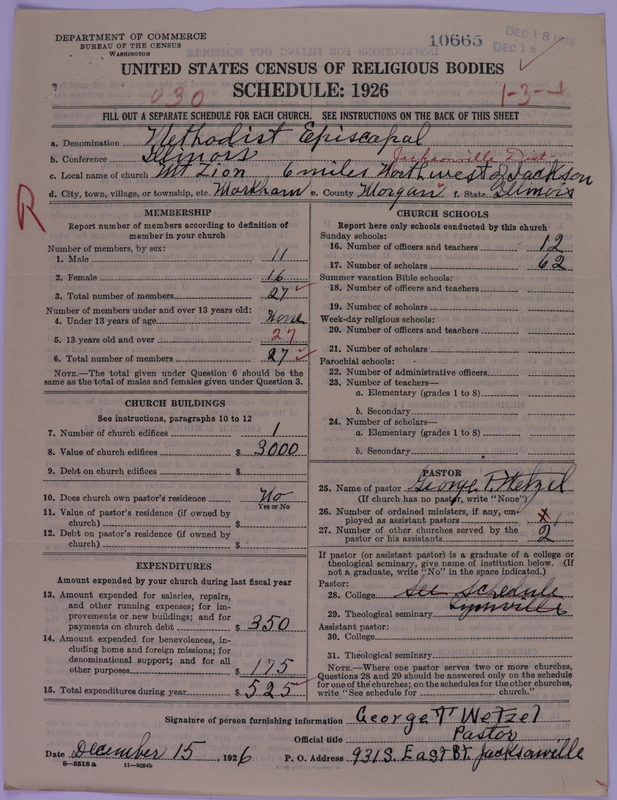 DEPARTMENT OF COMMERCE
BUREAU OF THE CENSUS
WASHINGTON
10665
DEC 18
UNITED STATES CENSUS OF RELIGIOUS BODIES
SCHEDULE: 1926
030
1-3-1
FILL OUT A SEPARATE SCHEDULE FOR EACH CHURCH. SEE INSTRUCTIONS ON THE BACK OF THIS SHEET
a. Denomination Methodist Episcapal
b. Conference Illinois Jacksonville Dist.
c. Local name of church Mt Zion 6 miles Northwest of Jackson
d. City, town, village, or township, etc. Markham e. County Morgan f. State Illinois
R
MEMBERSHIP
Report number of members according to definition of
member in your church
Number of members, by sex:
1. Male 11
2. Female 16
3. Total number of members 27
Number of members under and over 13 years old:
4. Under 13 years of age None
5. 13 years old and over 27
6. Total number of members 27
NOTE.—The total given under Question 6 should be the
same as the total of males and females given under Question 3.
CHURCH BUILDINGS
See instructions, paragraphs 10 to 12
7. Number of church edifices 1
8. Value of church edifices $ 3000
9. Debt on church edifices $
10. Does church own pastor's residence No
Yes or No
11. Value of pastor's residence (if owned by
church) $
12. Debt on pastor's residence (if owned by
church) $
EXPENDITURES
Amount expended by your church during last fiscal year
13. Amount expended for salaries, repairs,
and other running expenses; for im-
provements or new buildings; and for
payments on church debt $ 350
14. Amount expended for benevolences, in-
cluding home and foreign missions; for
denominational support; and for all
other purposes $ 175
15. Total expenditures during year $ 525
CHURCH SCHOOLS
Report here only schools conducted by this church
Sunday schools:
16. Number of officers and teachers 12
17. Number of scholars 62
Summer vacation Bible schools:
18. Number of officers and teachers
19. Number of scholars
Week-day religious schools:
20. Number of officers and teachers
21. Number of scholars
Parochial schools:
22. Number of administrative officers
23. Number of teachers—
a. Elementary (grades 1 to 8)
b. Secondary
24. Number of scholars—
a. Elementary (grades 1 to 8)
b. Secondary
PASTOR
25. Name of pastor George T. Wetzel
(If church has no pastor, write "None")
26. Number of ordained ministers, if any, em-
ployed as assistant pastors x
27. Number of other churches served by the
pastor or his assistants 2
If pastor (or assistant pastor) is a graduate of a college or
theological seminary, give name of institution below. (If
not a graduate, write "No" in the space indicated.)
Pastor:
28. College See Schedule
29. Theological seminary Lynnville
Assistant pastor:
30. College
31. Theological seminary
NOTE.—Where one pastor serves two or more churches,
Questions 28 and 29 should be answered only on the schedule
for one of the churches; on the schedules for the other churches,
write "See schedule for church."
Signature of person furnishing information George T Wetzel
Official title Pastor
Date December 15, 1926 P. O. Address 931 S. East St. Jacksonville
8-5318a 11-9054b